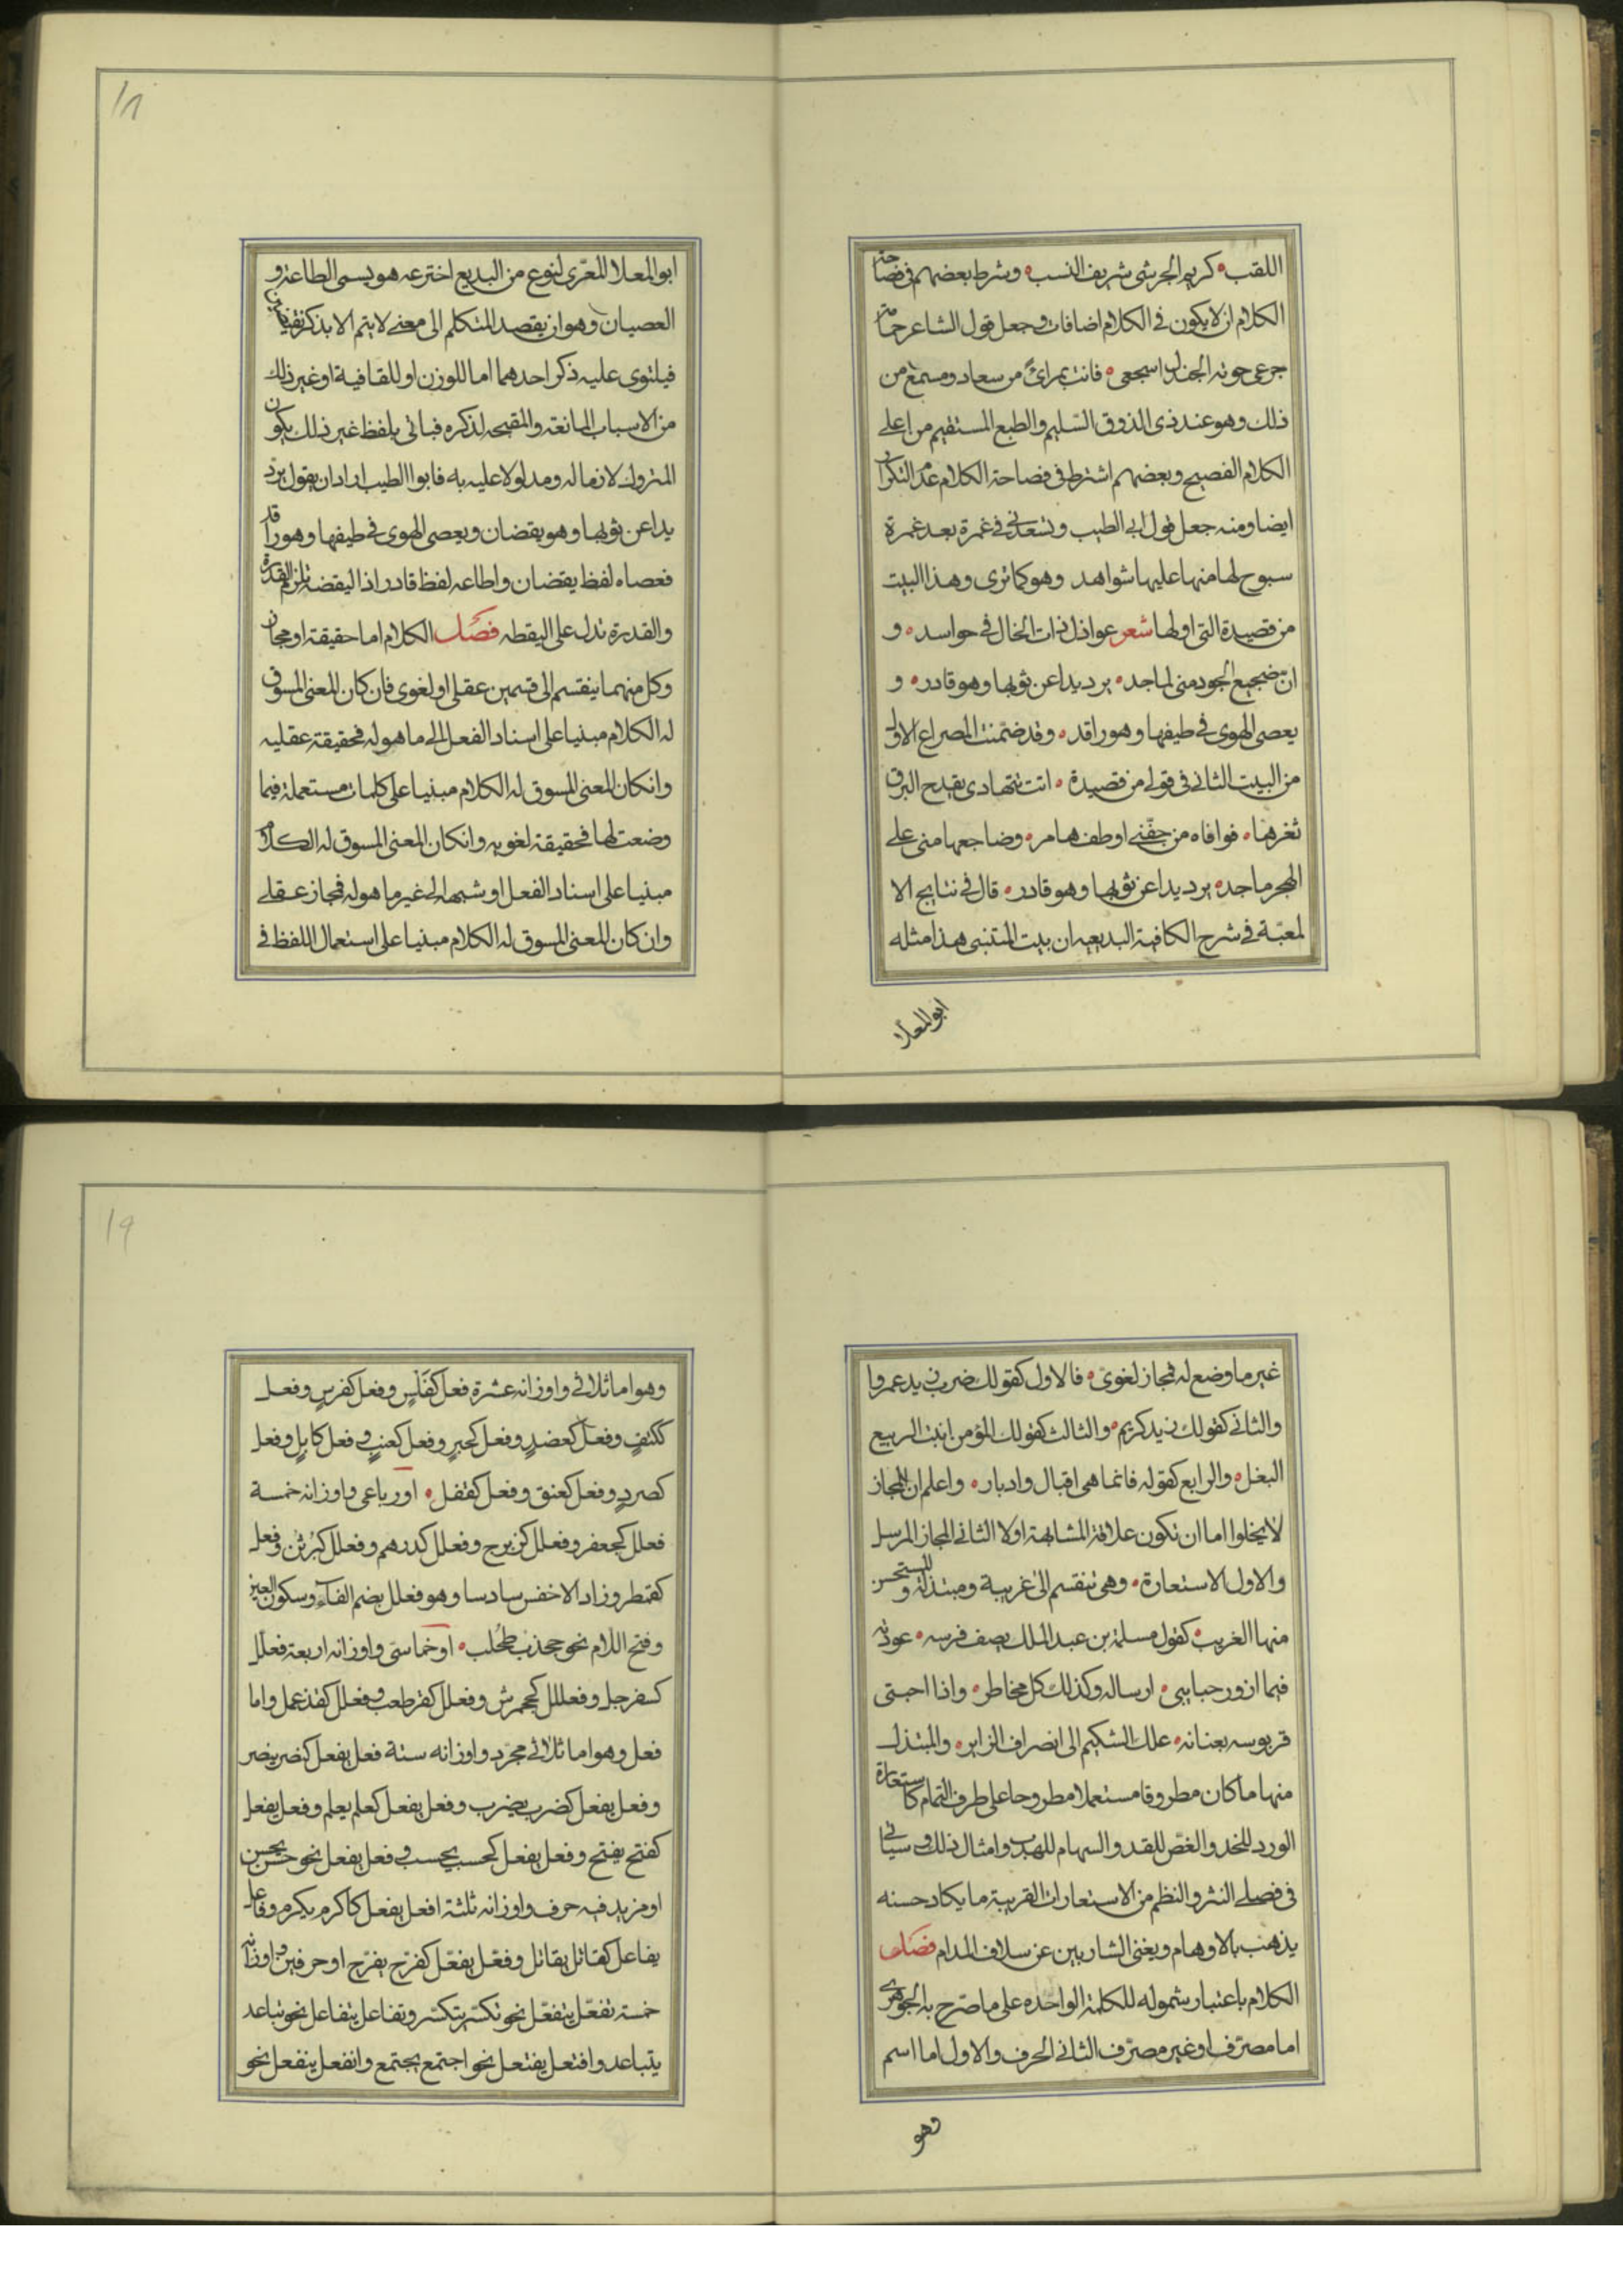 اللقب كريم الجرشى شريف النسب وشرط بعضهم فى فصاحة
الكلام ان لا يكون فى الكلام اضافات وجعل قول الشاعر حمامة
جرعى حومة الجندل اسجعى فانت بمرائ من سعاد ومسمع من
ذلك وهو عند ذى الذوق السليم والطبع المستقيم من اعلى
الكلام الفصيح وبعضهم اشترط فى فصاحة الكلام عدم التكرار
ايضا ومنه جعل قول ابى الطيب وتسعدنى فى غمرة بعد غمرة
سبوح لها منها عليها شواهد وهو كما ترى وهذا البيت
من قصيدة التى اولها شعر عواذل ذات الخال فى حواسد و
ان ضجيع الجود منى لماجد يرد يدا عن ثوبها وهو قادر و
يعصى الهوى فى طيفها وهو راقد وقد ضمنت المصراع الاول
من البيت الثانى فى قولى من قصيدة اتت تتهادى يقدح البرق
ثغرها فوافاه من جفنى اوطف هامر وضاجعها منى على
الهجر ماجد يرد يدا عن ثوبها وهو قادر قال فى نتايج الا
لمعيّة فى شرح الكافية البديعيه ان بيت المتنبى هذا مثله
ابو المعلا
١٨
ابو المعلا المعّرى لنوع من البديع اخترعه هو يسمى الطاعة و
العصيان وهو ان يقصد المتكلم الى معنى لا يتم الا بذكر
فيلتوى عليه ذكر احدهما اما للوزن او للقافية او غير ذلك
من الاسباب المانعة والمقبحه لذكره فياتى بلفظ غير ذلك يكون
المتروك لازما له ومدلولا عليه به فابوا الطيب اراد ان يقول يرد
يدا عن ثوبها وهو يقضان ويعصى الهوى فى طيفها وهو راقد
فعصاه لفظ يقضان واطاعه لفظ قادر اذ اليقضة تلزم القدرة
والقدرة تدل على اليقظه فصل الكلام اما حقيقة او مجاز
وكل منهما ينقسم الى قسمين عقلى او لغوى فان كان المعنى المسوق
له الكلام مبنيا على اسناد الفعل الى ما هو له فحقيقة عقليه
وانكان المعنى المسوق له الكلام مبنيا على كلمات مستعملة فيما
وضعت لها فحقيقة لغويه وانكان المعنى المسوق له الكلام
مبنيا على اسناد الفعل او شبهه الى غير ما هو له فمجاز عقلى
وان كان المعنى المسوق له الكلام مبنيا على استعمال اللفظ فى
غير ما وضع له فمجاز لغوىّ فالاول كقولك ضرب زيد عمروا
والثانى كقولك زيد كريم والثالث كقولك المؤمن انبت الربيع
البغل والرابع كقوله فانما هى اقبال وادبار واعلم ان المجاز
لا يخلوا اما ان تكون علاقة المشابهة اولا الثانى المجاز المرسل
والاول الاستعارة وهى تنقسم الى غريبة ومبتذلة والمستحسن
منها الغريب كقول مسلمة بن عبد الملك يصف فرسه عودته
فيما ازور حبايبى ارساله وكذلك كل مخاطر واذا احبتى
قربوسه بعنانه علك الشكيم الى انصراف الزاير والمبتذل
منها ما كان مطروقا مستعملا مطروحا على طرف الثمام كاستعارة
الورد للخد والغصن للقد والسهام للهدب وامثال ذلك وسياتى
فى فصلى النثر والنظم من الاستعارات القريبة ما يكاد حسنه
يذهب بالاوهام ويغنى الشاربين عن سلاف المدام فصل
الكلام باعتبار شموله للكلمة الواحده على ما صرّح به الجوهرى
اما مصرّف او غير مصرّف الثانى الحرف والاول اما اسم
وهو
١٩
وهو اما ثلاثى واوزانه عشرة فعل كفلس وفعل كفرس وفعل
ككتف وفعل كعضد وفعل كحبر وفعل كعنب وفعل كابل وفعل
كصرد وفعل كعنق وفعل كقفل او رباعى واوزانه خمسة
فعلل كجعفر وفعلل كزبرج وفعلل كدرهم وفعلل كبرثن وفعل
كقمطر وزاد الاخفس سادسا وهو فعلل بضم الفاء وسكون العين
وفتح اللام نحو جحذب طحلب او خماسى واوزانه اربعة فعلل
كسفرجل وفعللل كجحمرش وفعلل كقرطعب وفعلل كقذعمل واما
فعل وهو اما ثلاثى مجرّد واوزانه ستة فعل يفعل كنصر ينصر
وفعل يفعل كضرب يضرب وفعل يفعل كعلم يعلم وفعل يفعل
كفتح يفتح وفعل يفعل كحسب يحسب وفعل يفعل نحو حسن يحسن
او مزيد فيه حرف واوزانه ثلثة افعل يفعل كاكرم يكرم وفاعل
يفاعل كقاتل يقاتل وفعّل يفعّل كفرّح يفرّح او حرفين واوزانه
خمسة تفعّل يتفعّل نحو تكسّر يتكسّر وتفاعل يتفاعل نحو تباعد
يتباعد وافتعل يفتعل نحو اجتمع يجتمع وانفعل ينفعل نحو